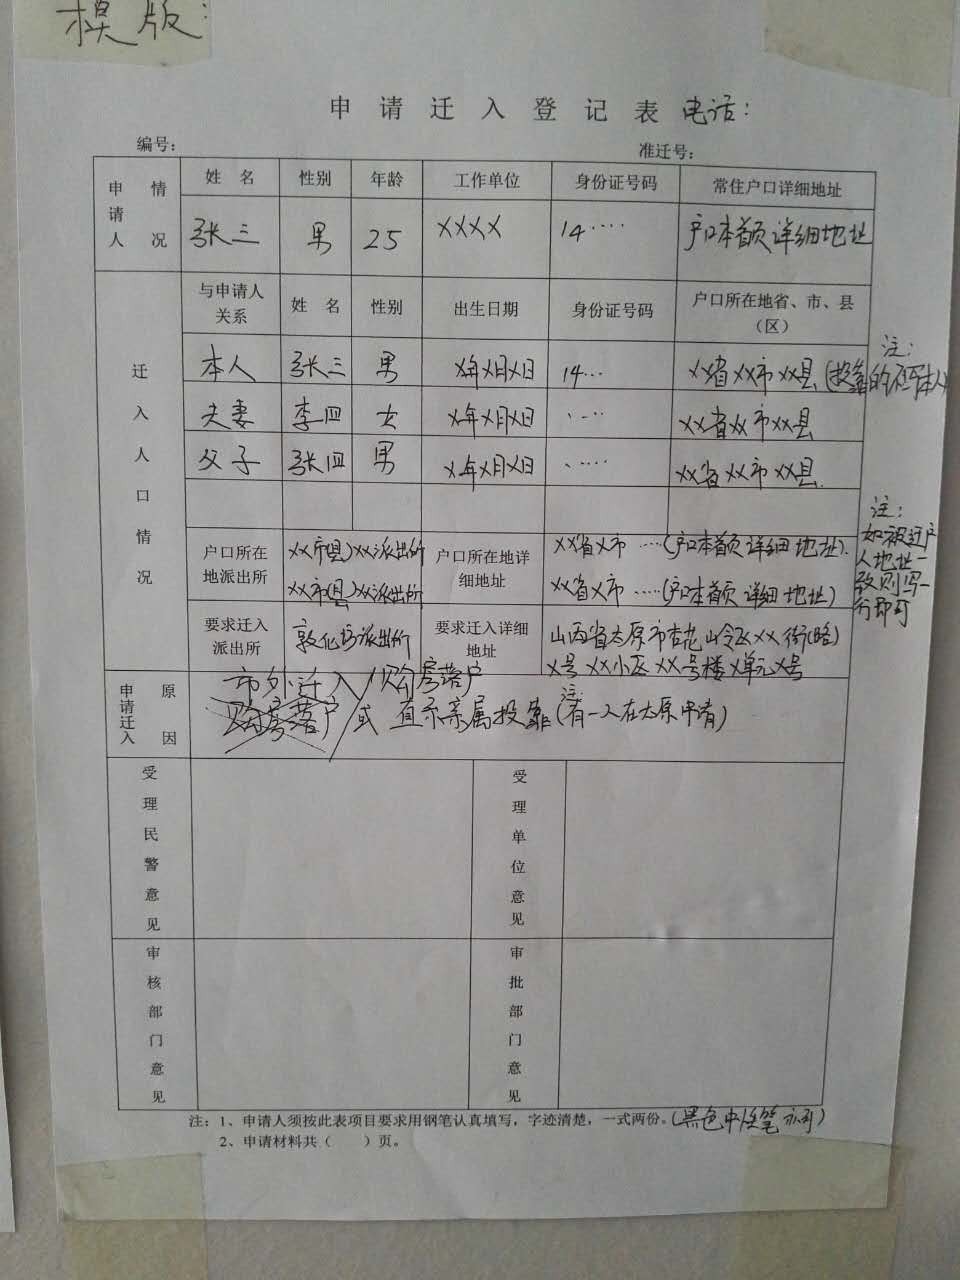 模版:
申请迁入登记表 电话:
编号: 准迁号:
申请人情况 姓名 性别 年龄 工作单位 身份证号码 常住户口详细地址
张三 男 25 XXXX 14···· 户口本首页详细地址
迁入人口情况
与申请人关系 姓名 性别 出生日期 身份证号码 户口所在地省、市、县(区)
注:
本人 张三 男 X年X月X日 14··· XX省XX市XX县(投靠的不写本人)
夫妻 李四 女 X年X月X日 ···· XX省XX市XX县
父子 张四 男 X年X月X日 ····· XX省XX市XX县.
户口所在地派出所 XX市(县)XX派出所 户口所在地详细地址 XX省X市····(户口本首页详细地址).
XX市(县)XX派出所 XX省X市·····(户口本首页详细地址)
注:
如被迁户
人地址一
致则写一
行即可
要求迁入派出所 敦化坊派出所 要求迁入详细地址 山西省太原市杏花岭区XX街(路)
X号XX小区XX号楼X单元X号
申请迁入原因 市外迁入/购房落户
购房落户/或直系亲属投靠(注:有一人在太原申请)
受理民警意见 受理单位意见
审核部门意见 审批部门意见
注:1、申请人须按此表项目要求用钢笔认真填写,字迹清楚,一式两份。(黑色中性笔亦可)
2、申请材料共( )页。